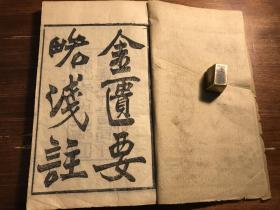 金匱要
畧淺註